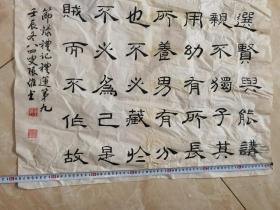 選賢與能講
親不獨子其
用幼有所長
所養男有分
也不必藏於
不必為己是
賊而不作故
節錄禮記禮運第九